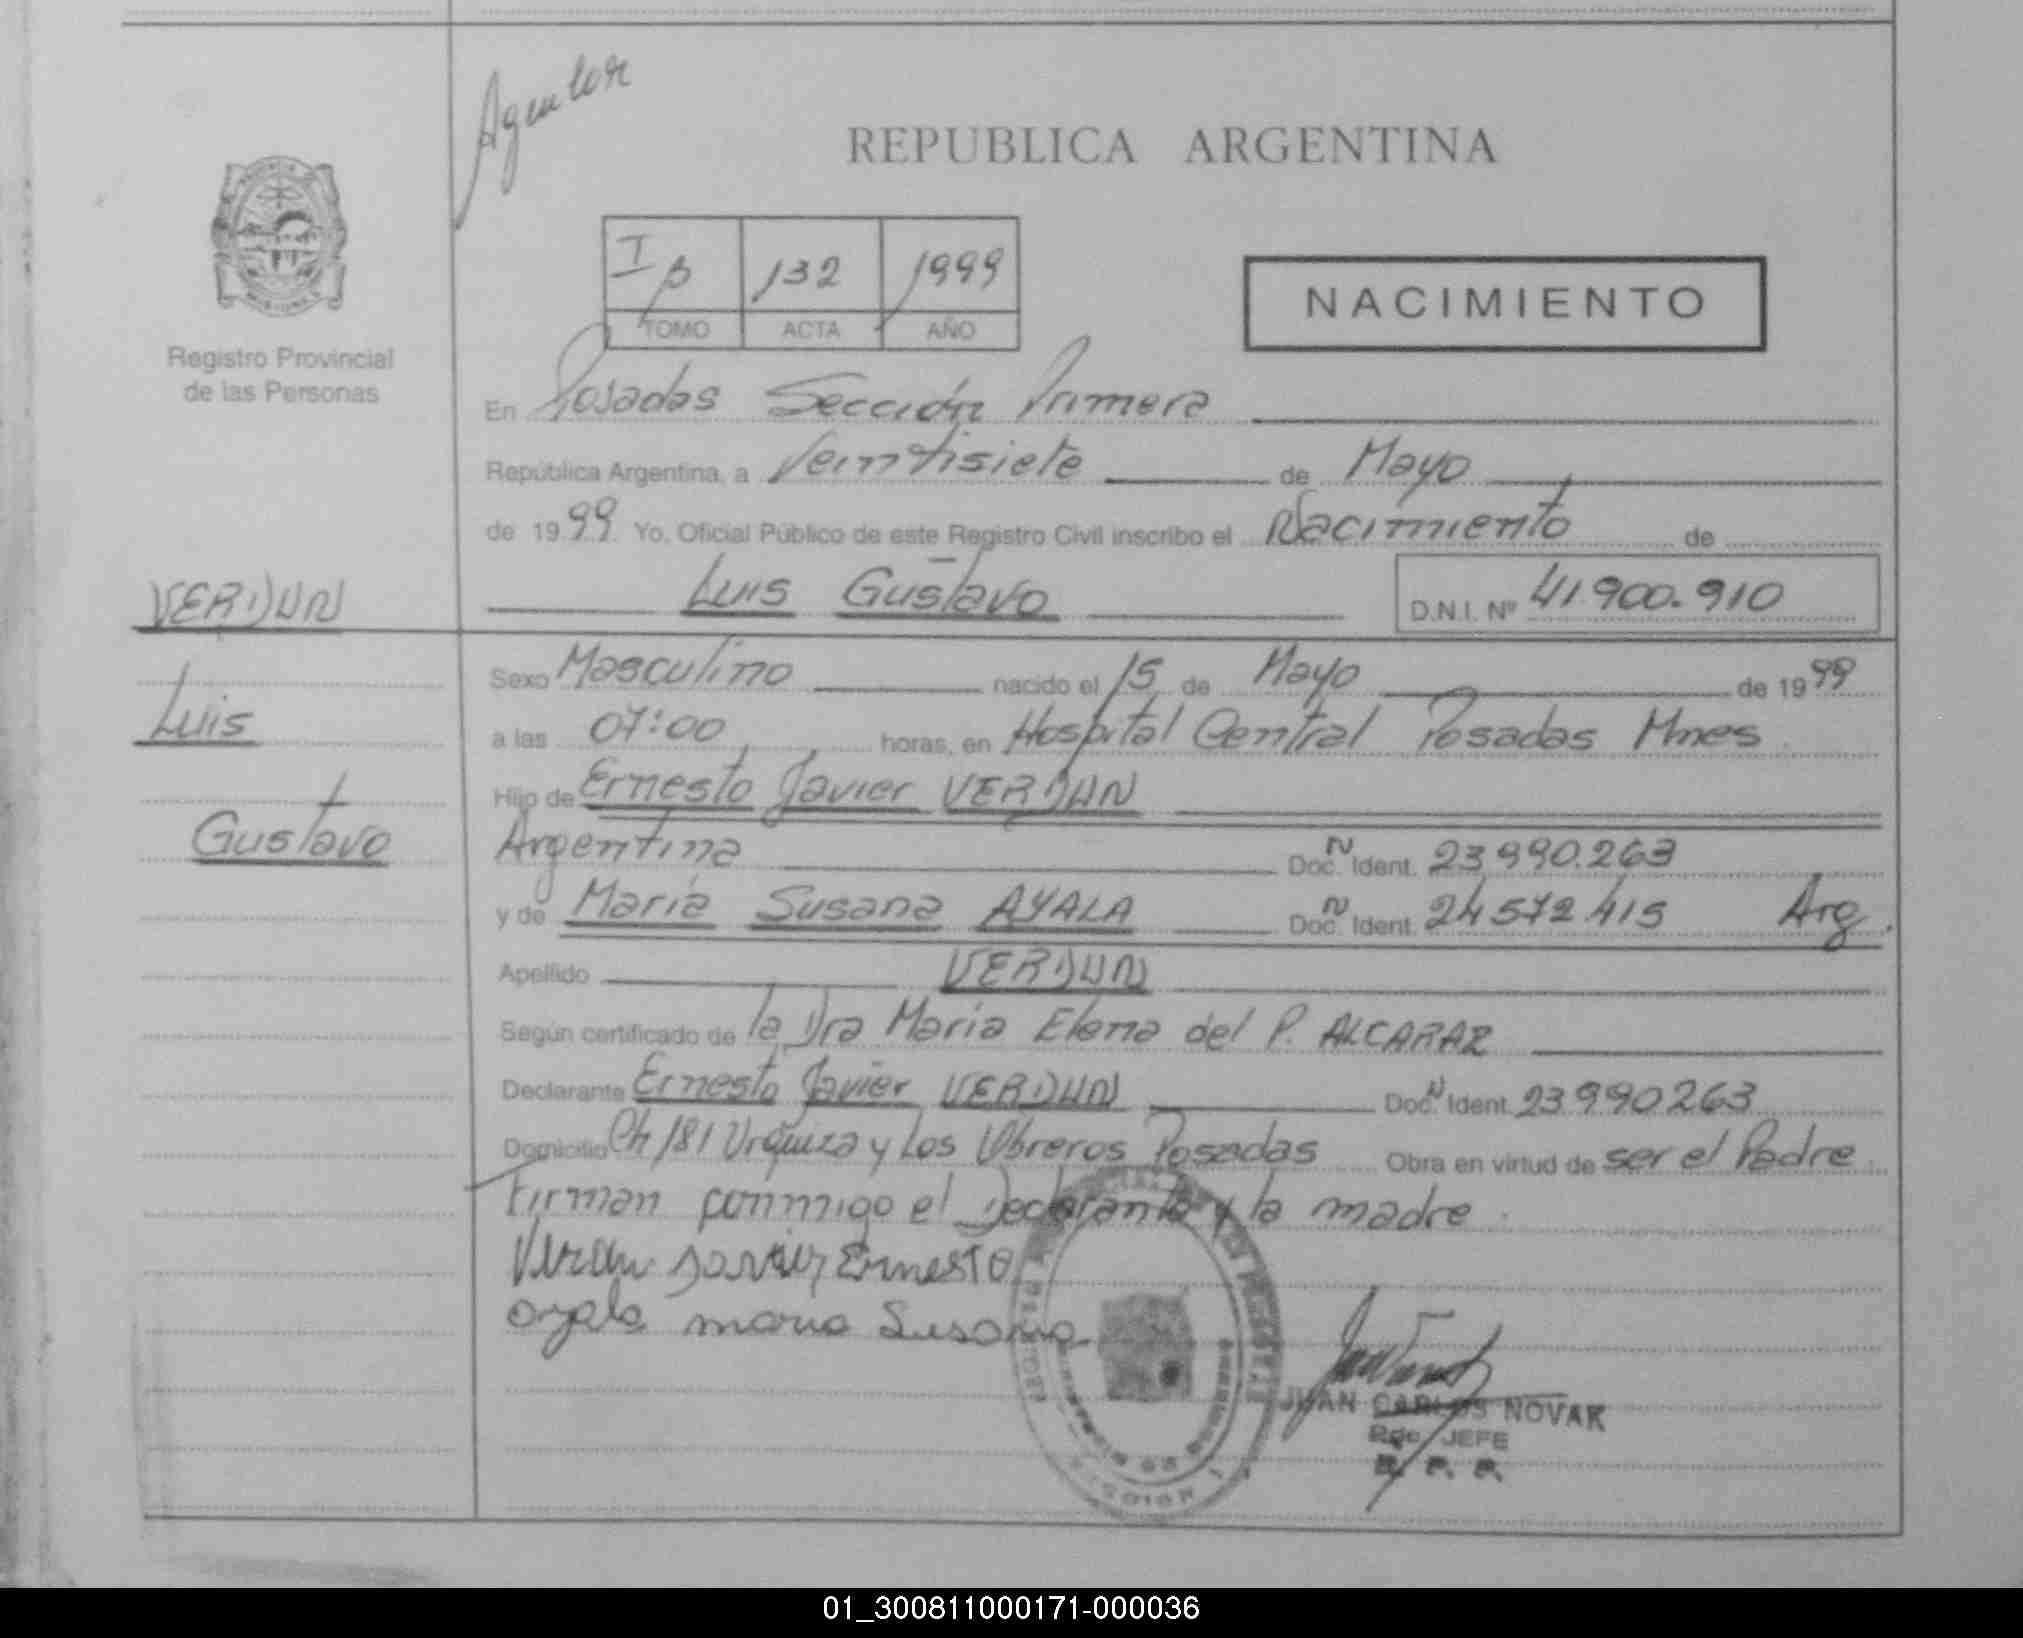 Aguilar
REPUBLICA ARGENTINA
I B 132 1999
TOMO ACTA AÑO
NACIMIENTO
Registro Provincial
de las Personas
En Posadas Sección Primera
República Argentina, a Veintisiete de Mayo
de 1999 Yo, Oficial Público de este Registro Civil inscribo el Nacimiento de
VERDUN
Luis Gustavo D.N.I. Nº 41.900.910
Sexo Masculino nacido el 15 de Mayo de 1999
Luis
a las 07:00 horas, en Hospital Central Posadas Mnes
Hijo de Ernesto Javier VERDUN
Gustavo
Argentina Doc. N Ident. 23.990.263
y de María Susana AYALA Doc. N Ident. 24572415 Arg.
Apellido VERDUN
Según certificado de la Dra María Elena del P. ALCARAZ
Declarante Ernesto Javier VERDUN Doc. N Ident. 23990263
Domicilio Ch 181 Urquiza y Los Obreros Posadas Obra en virtud de ser el Padre
Firman conmigo el Declarante y la madre.
Javier Ernesto
ayala maria Susana
JUAN CARLOS NOVAK
JEFE
R. P. P.
01_300811000171-000036